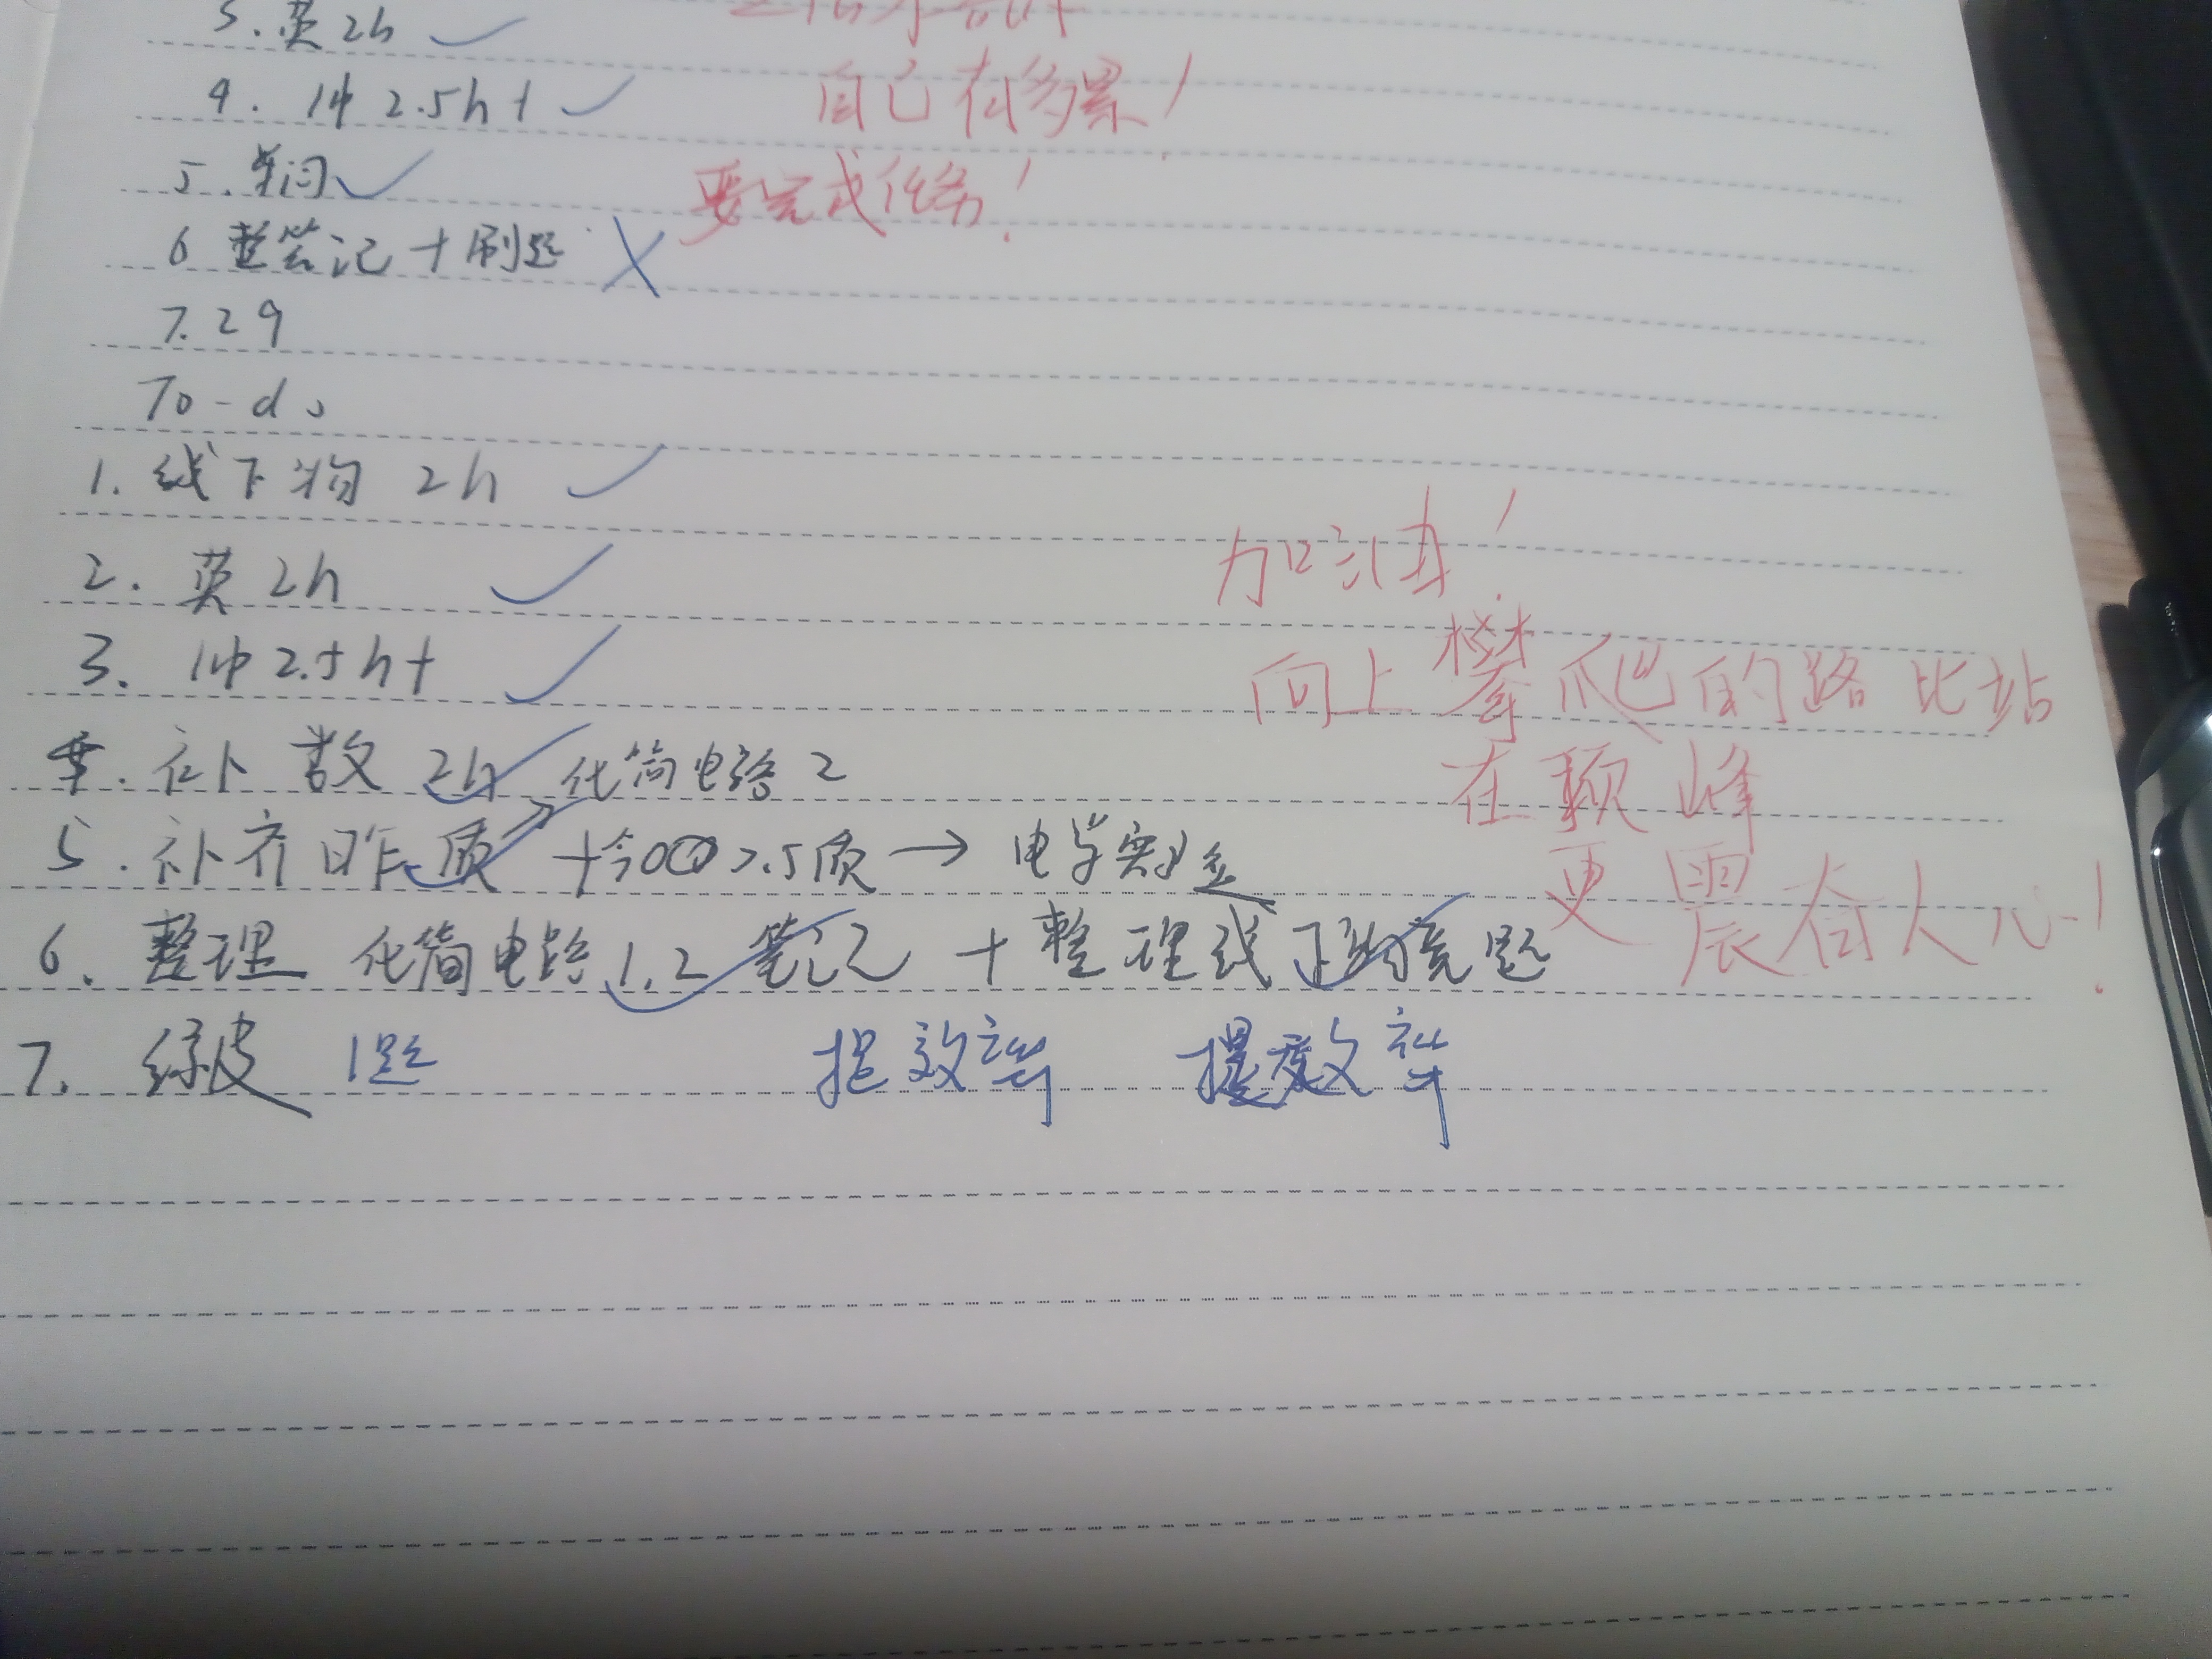 3. 英 2h
4. 1冲 2.5h+
自己有多累!
5.
要完成任务!
6 整笔记+刷题
7.29
To-do
1. 线下物 2h
2. 英 2h
加油!
3. 1冲 2.5h+
向上攀爬的路比站
4. 补数 2h
化简电路2
在颠峰
5. 补齐昨质 +今 2.5质→电学实
更震奋人心!
6. 整理 化简电路1.2 笔记 + 整理线下物竞题
7. 绿皮 1题 提效率 提效率